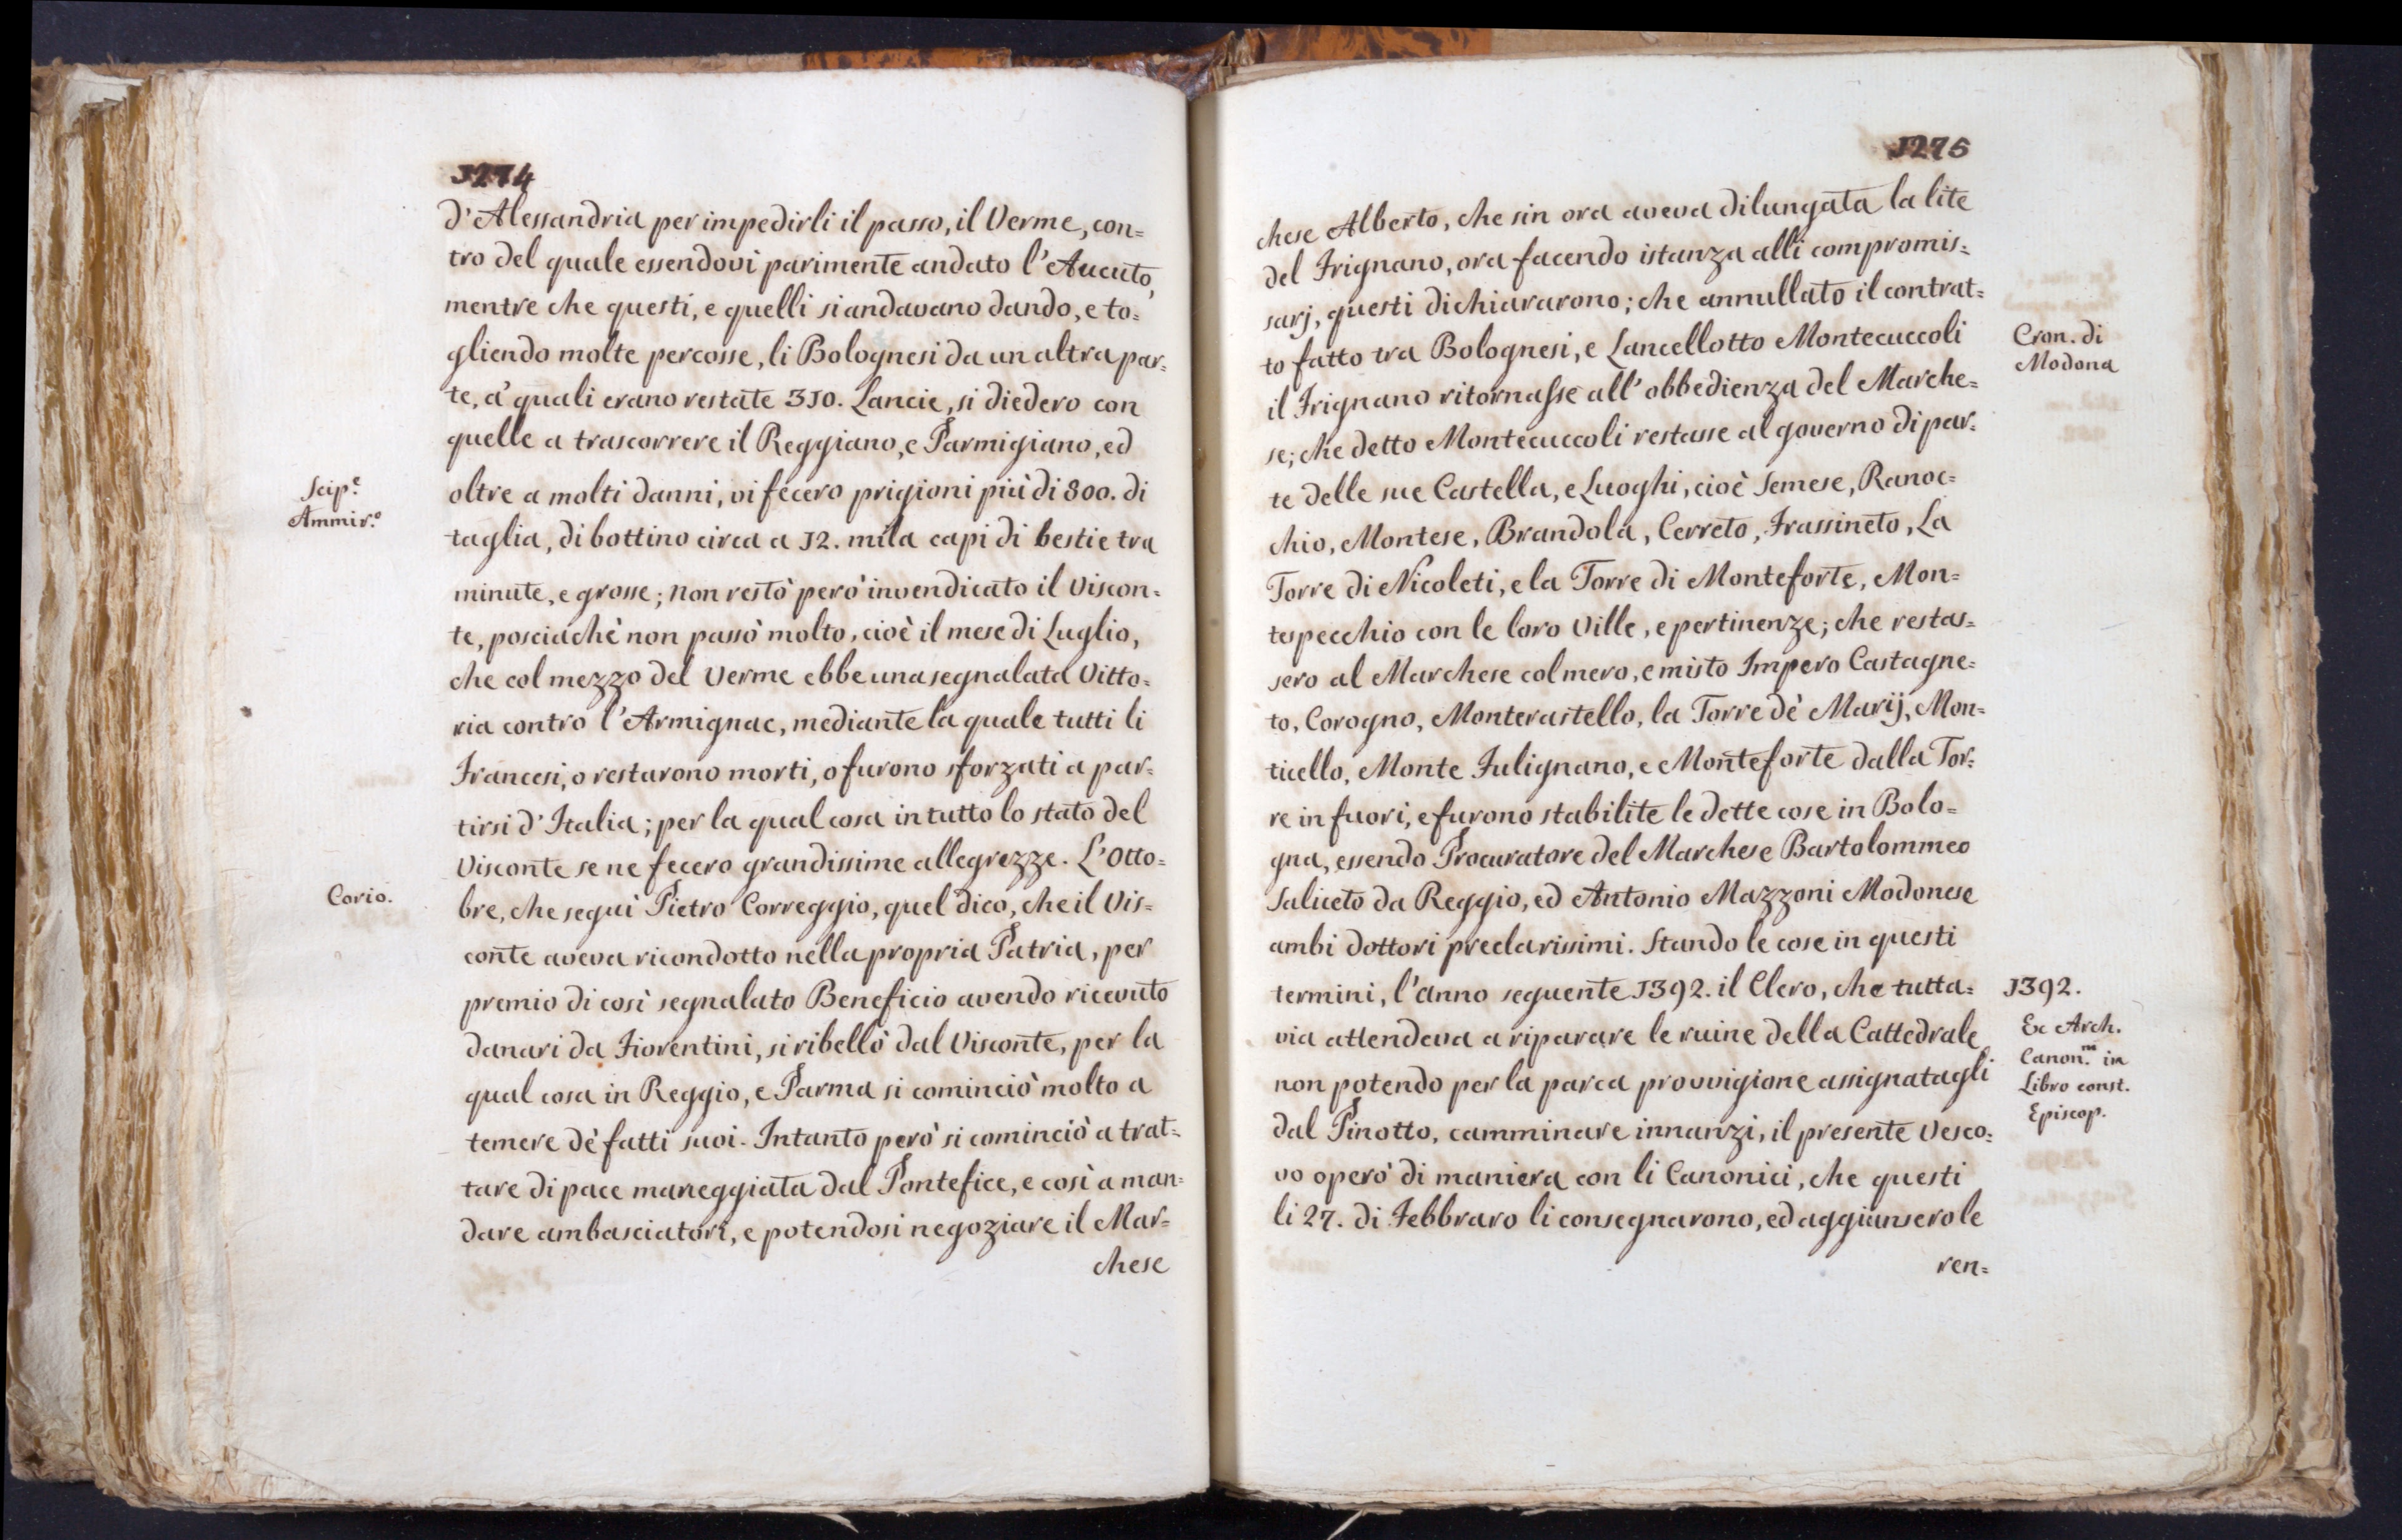 1274
d'Alessandria per impedirli il passo, il Verme, con=
tro del quale essendovi parimente andato l'Aucuto,
mentre che questi, e quelli si andavano dando, e to=
gliendo molte percosse, li Bolognesi da un altra par=
te, a' quali erano restate 310. Lancie, si diedero con
quelle a trascorrere il Reggiano, e Parmigiano, ed
Scip.e
Ammir.o
oltre a molti danni, vi fecero prigioni più di 800. di
taglia, di bottino circa a 12. mila capi di bestie tra
minute, e grosse; non restò però invendicato il Viscon=
te, posciachè non passò molto, cioè il mese di Luglio,
che col mezzo del Verme ebbe una segnalata Vitto=
ria contro l'Armignac, mediante la quale tutti li
Francesi, o restarono morti, o furono sforzati a par=
tirsi d'Italia; per la qual cosa in tutto lo stato del
Visconte se ne fecero grandissime allegrezze. L'Otto=
Corio.
bre, che seguì Pietro Correggio, quel dico, che il Vis=
conte aveva ricondotto nella propria Patria, per
premio di così segnalato Beneficio avendo ricevuto
danari da Fiorentini, si ribellò dal Visconte, per la
qual cosa in Reggio, e Parma si cominciò molto a
temere dè fatti suoi. Intanto però si cominciò a trat=
tare di pace maneggiata dal Pontefice, e così a man=
dare ambasciatori, e potendosi negoziare il Mar=
chese
1275
chese Alberto, che sin ora aveva dilungata la lite
del Frignano, ora facendo istanza alli compromis=
sarj, questi dichiararono; che annullato il contrat=
to fatto tra Bolognesi, e Lancellotto Montecuccoli
Cron. di
Modona
il Frignano ritornasse all'obbedienza del Marche=
se; che detto Montecuccoli restasse al governo di par=
te delle sue Castella, e Luoghi, cioè Semese, Ranoc=
chio, Montese, Brandola, Cerreto, Frassineto, La
Torre di Nicoleti, e la Torre di Monteforte, Mon=
tespecchio con le loro Ville, e pertinenze; che restas=
sero al Marchese col mero, e misto Impero Castagne=
to, Corogno, Monterastello, la Torre dè Marij, Mon=
ticello, Monte Fulignano, e Monteforte dalla Tor=
re in fuori, e furono stabilite le dette cose in Bolo=
gna, essendo Procuratore del Marchese Bartolommeo
Saliceto da Reggio, ed Antonio Mazzoni Modonese
ambi dottori preclarissimi. Stando le cose in questi
termini, l'anno seguente 1392. il Clero, che tutta=
1392.
via attendeva a riparare le ruine della Cattedrale
Ex Arch.
Canon.m in
Libro const.
Episcop.
non potendo per la parca provvigione assignatagli
dal Pinotto, camminare innanzi, il presente Vesco=
vo operò di maniera con li Canonici, che questi
li 27. di Febbraro li consegnarono, ed aggiunserole
ren=